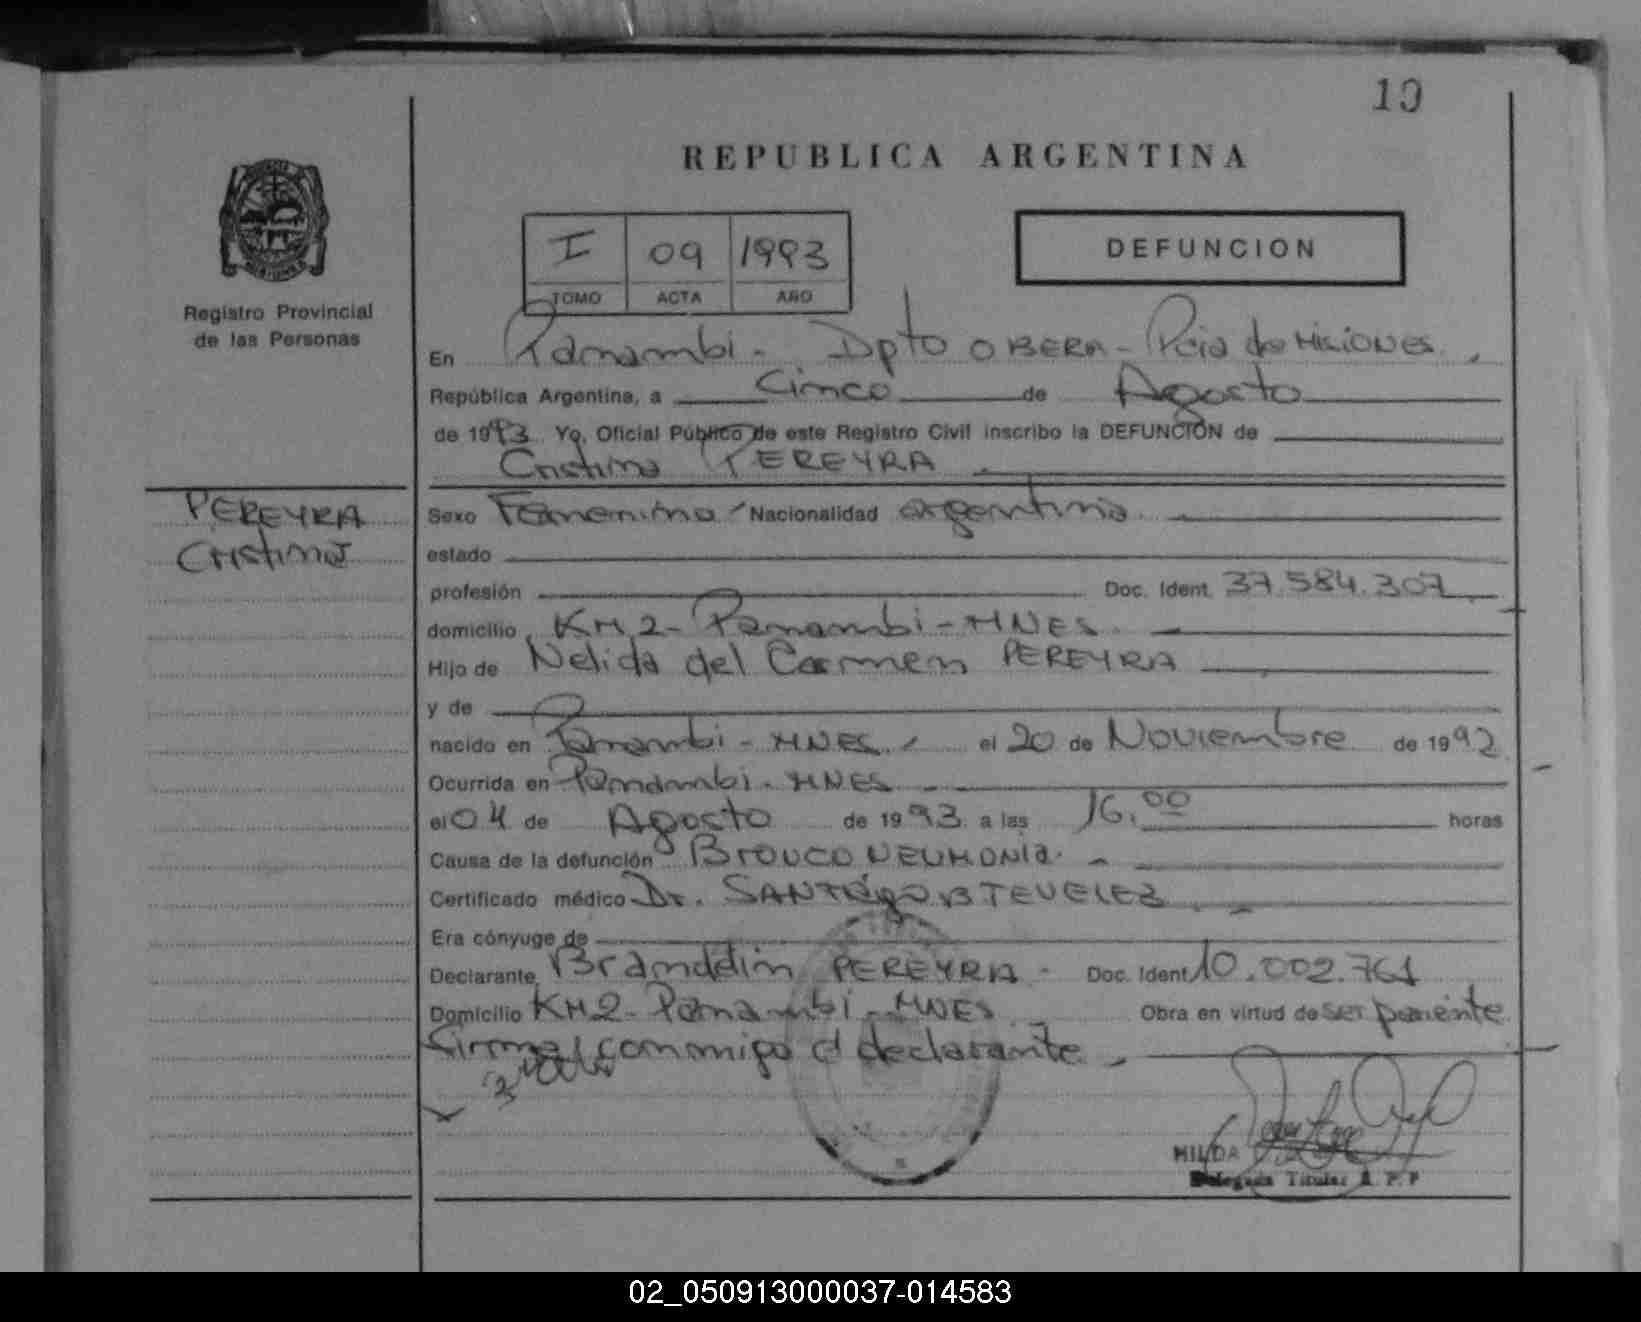 10
REPUBLICA ARGENTINA
Registro Provincial
de las Personas
I 09 1993
TOMO ACTA AÑO
DEFUNCION
En Panambi - Dpto OBERA - Pcia de MISIONES.
República Argentina, a Cinco de Agosto
de 1993. Yo, Oficial Público de este Registro Civil inscribo la DEFUNCIÓN de
Cristina PEREYRA
PEREYRA
Cristina
Sexo Femenino Nacionalidad argentina
estado
profesión Doc. Ident. 37.584.307
domicilio KM 2 - Panambi - MNES
Hijo de Nelida del Carmen PEREYRA
y de
nacido en Panambi - MNES el 20 de Noviembre de 1992
Ocurrida en Panambi - MNES
el 04 de Agosto de 1993 a las 16.00 horas
Causa de la defunción BroncoNEUMONIA.
Certificado médico Dr. SANTIAGO
Era cónyuge de
Declarante Branddin PEREYRA - Doc. Ident 10.002.761
Domicilio KM 2 - Panambi - MNES Obra en virtud de ser pariente
Firma conmigo el declarante
HILDA
Delegada Titular R. P. P
02_050913000037-014583